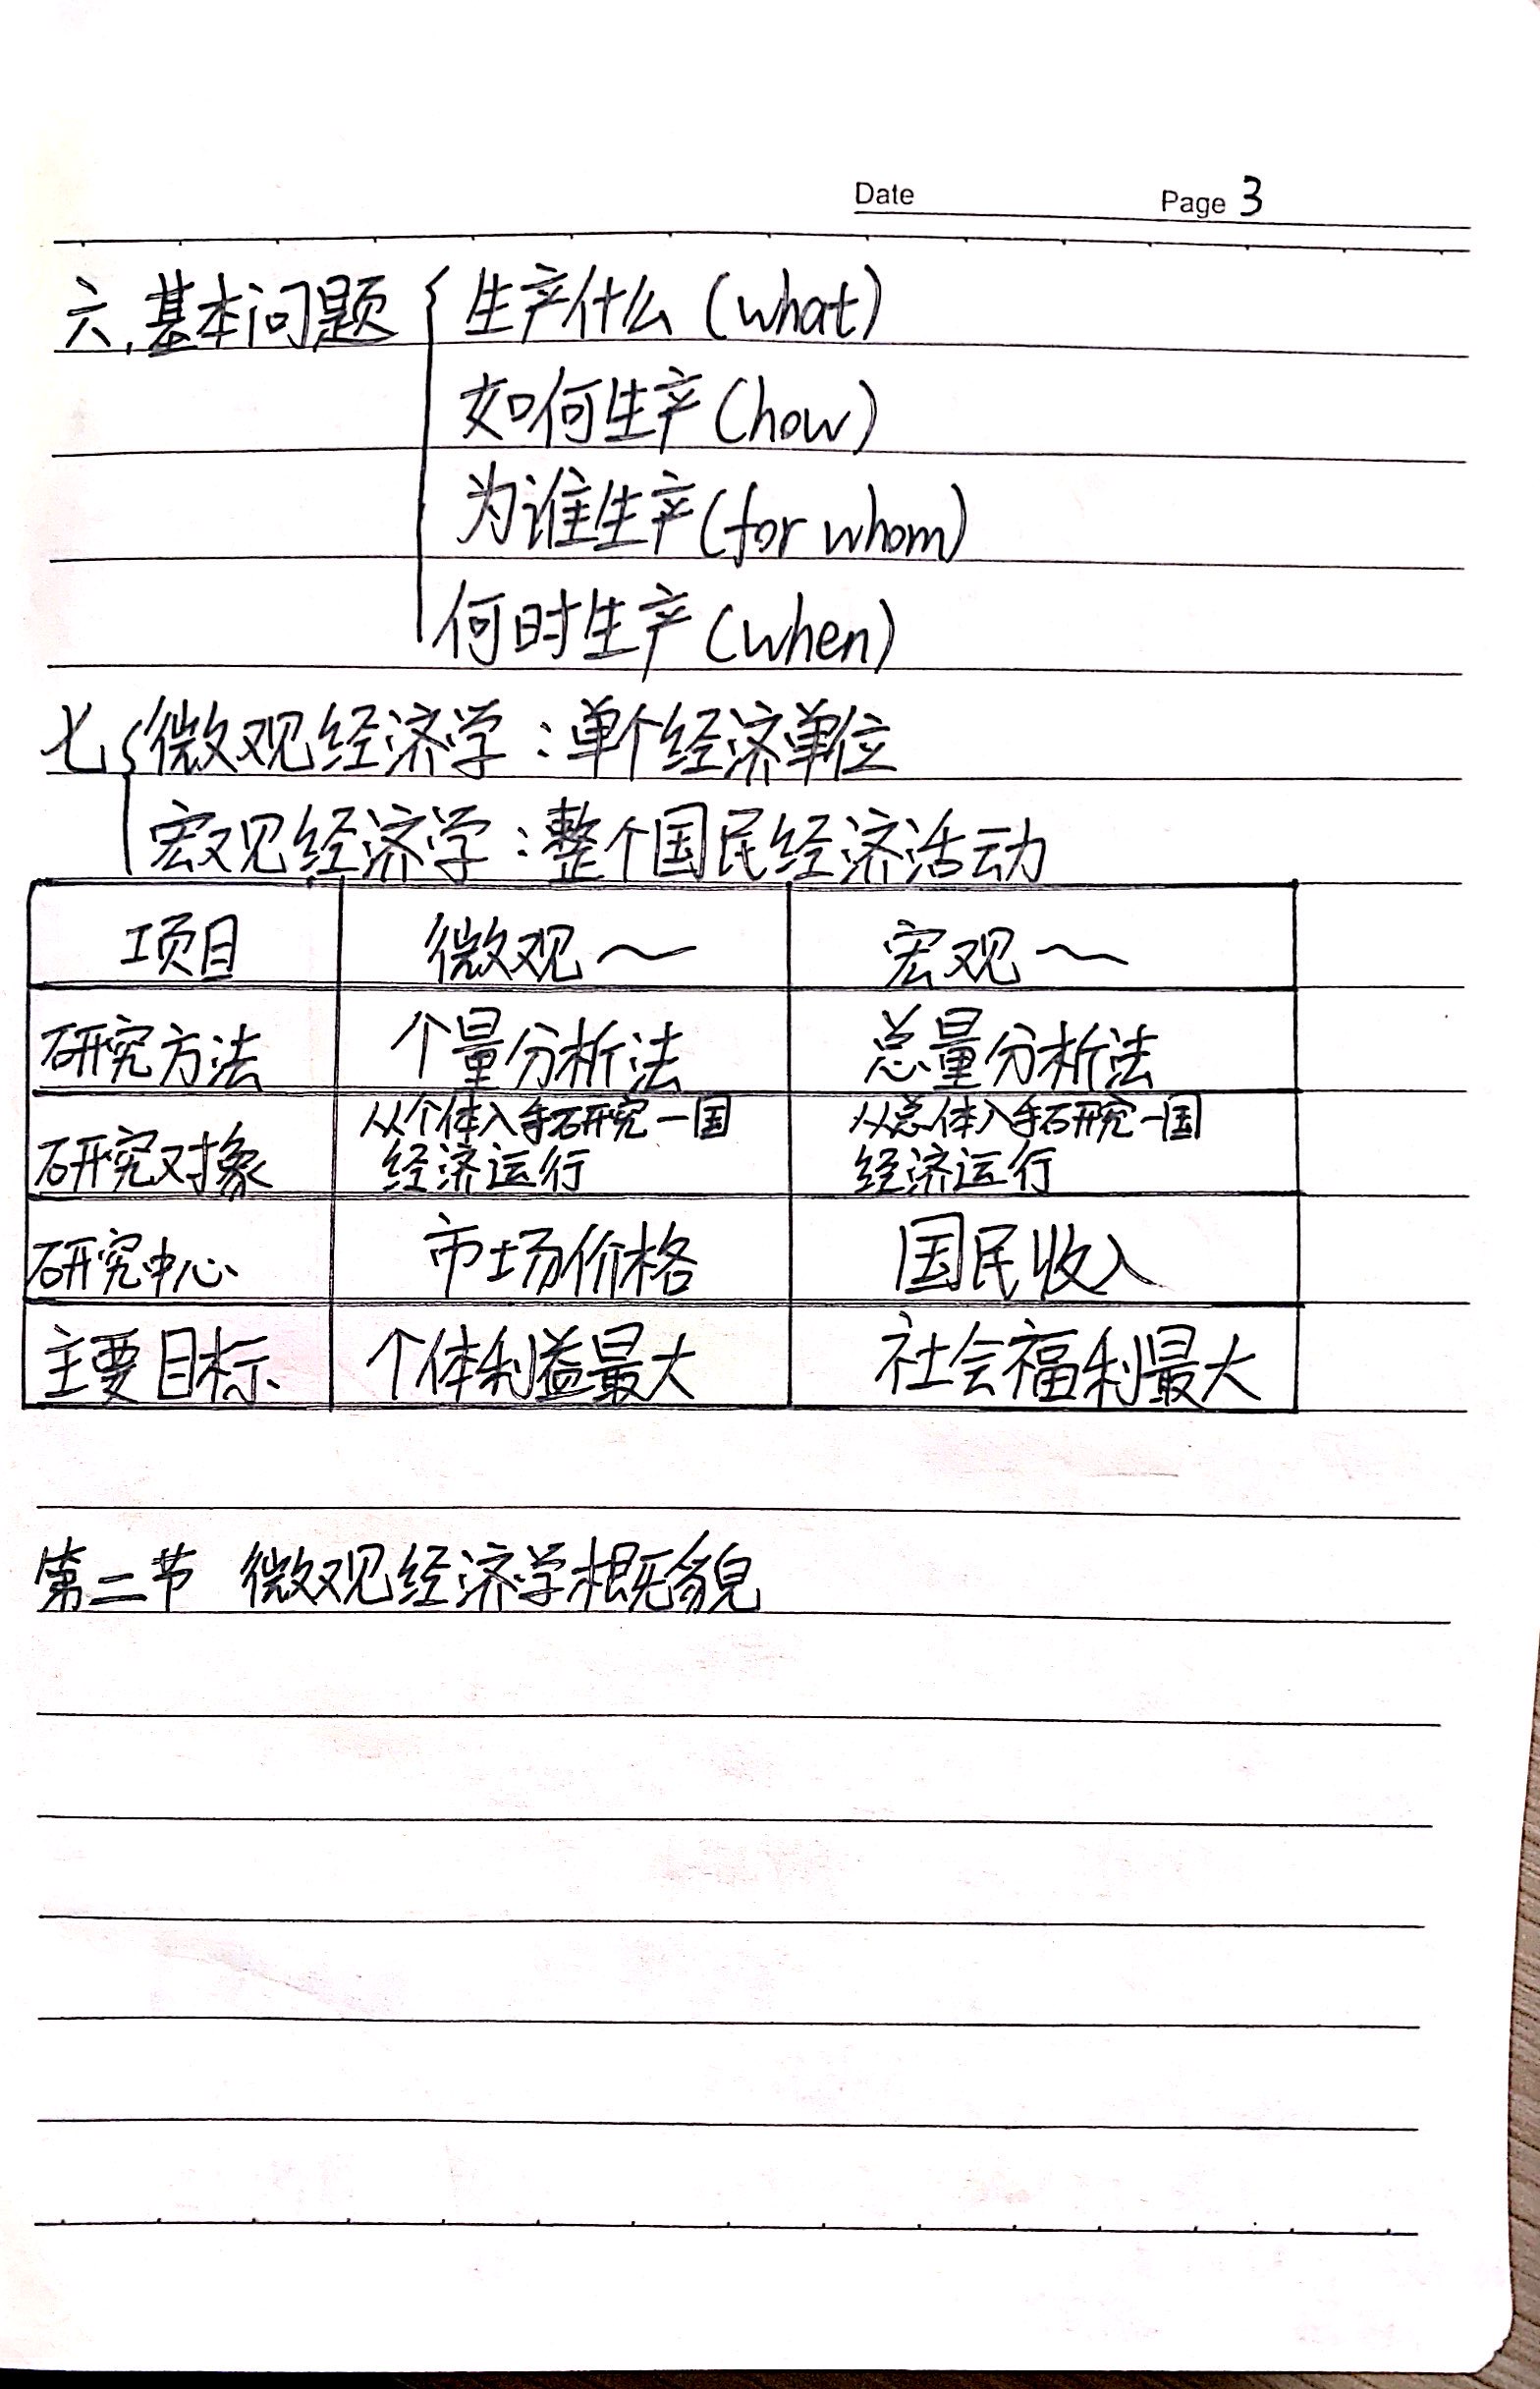 Date Page 3
六.基本问题 { 生产什么 (what)
如何生产 (how)
为谁生产 (for whom)
何时生产 (when)
七 { 微观经济学：单个经济单位
宏观经济学：整个国民经济活动
项目 微观～ 宏观～
研究方法 个量分析法 总量分析法
研究对象 从个体入手研究一国 从总体入手研究一国
经济运行 经济运行
研究中心 市场价格 国民收入
主要目标 个体利益最大 社会福利最大
第二节 微观经济学概貌